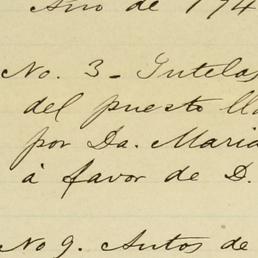 Año de 174
No. 3 - Intelas
del puesto lla
por Da. Maria
á favor de D.
No 9. Autos de